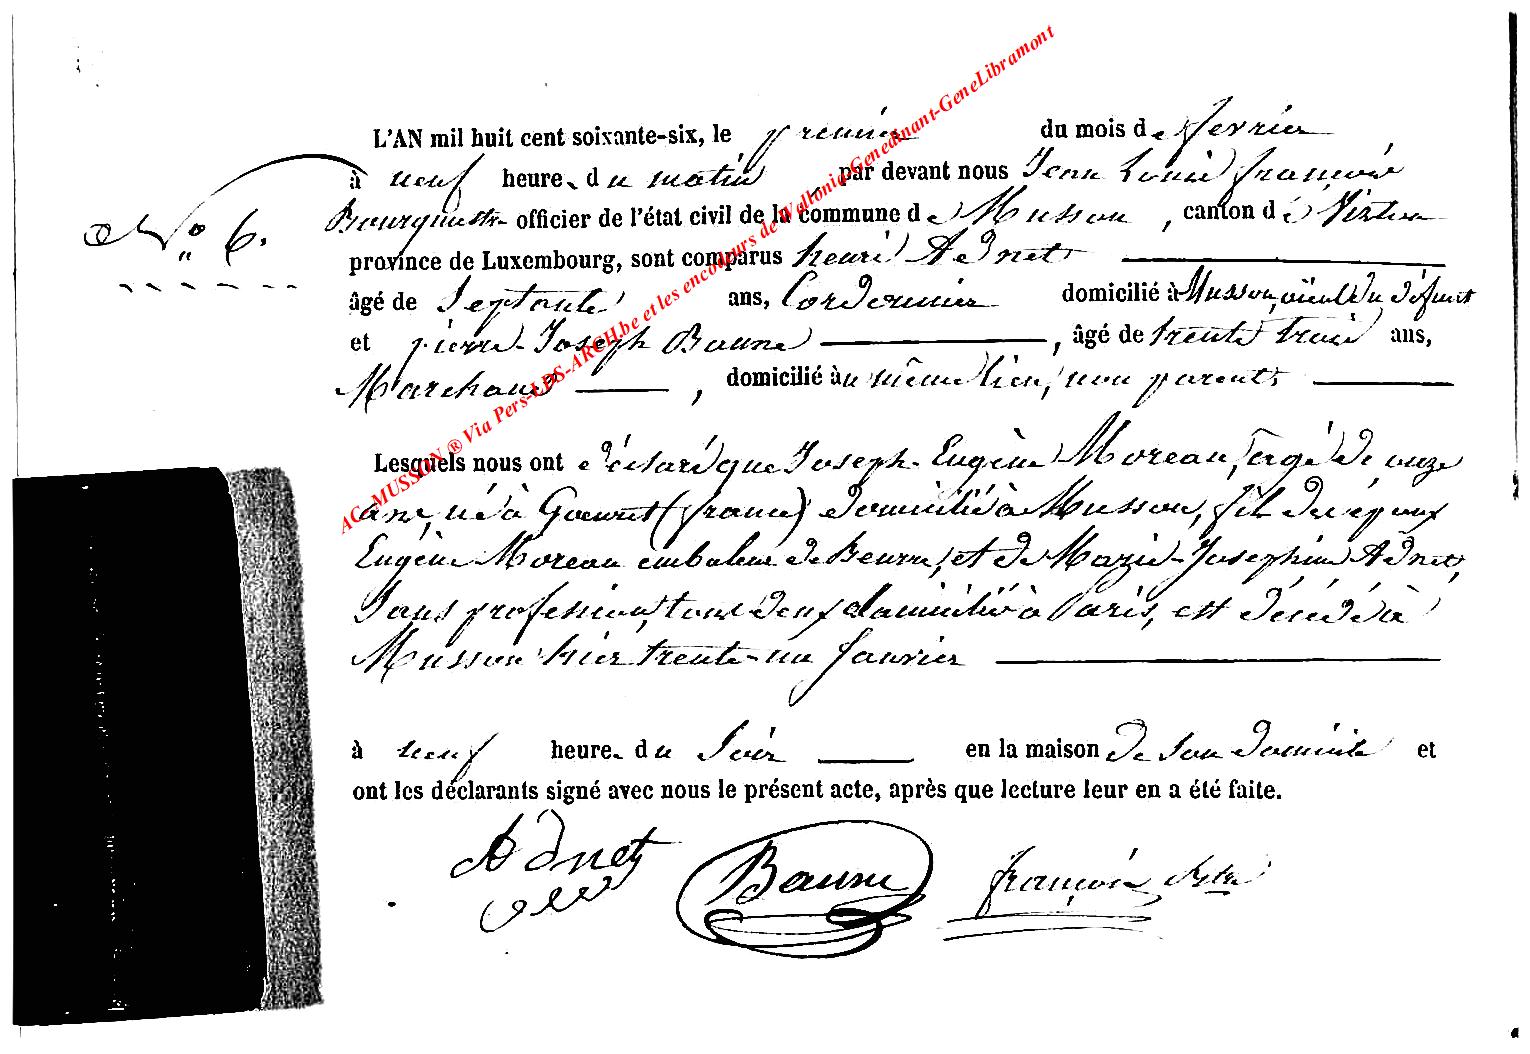 L'AN mil huit cent soixante-six, le premier du mois de fevrier
à neuf heure du matin, par devant nous Jean Louis françois
No 6. Bourgmestre officier de l'état civil de la commune de Musson, canton de Virton
province de Luxembourg, sont comparus henri Adnet
âgé de Septante ans, Cordonnier domicilié à Musson, aïeul du défunt
et pierre-Joseph Baune, âgé de trente trois ans,
Marchand, domicilié au même lieu, non parent
Lesquels nous ont déclaré que Joseph-Eugène Moreau, agé de onze
ans, né à (france) domicilié à Musson, fils des époux
Eugène Moreau de Beurre, et de Marie-Josephine Adnet,
Sans profession, tous deux domiciliés à Paris, est décédé à
Musson hier trente-un Janvier
à neuf heure du Soir en la maison de son domicile et
ont les déclarants signé avec nous le présent acte, après que lecture leur en a été faite.
Adnet Baune françois
AC-MUSSON ® Via Pers-LDS-ARCH.be et les encodeurs de Wallonia-Genedinant-GeneLibramont